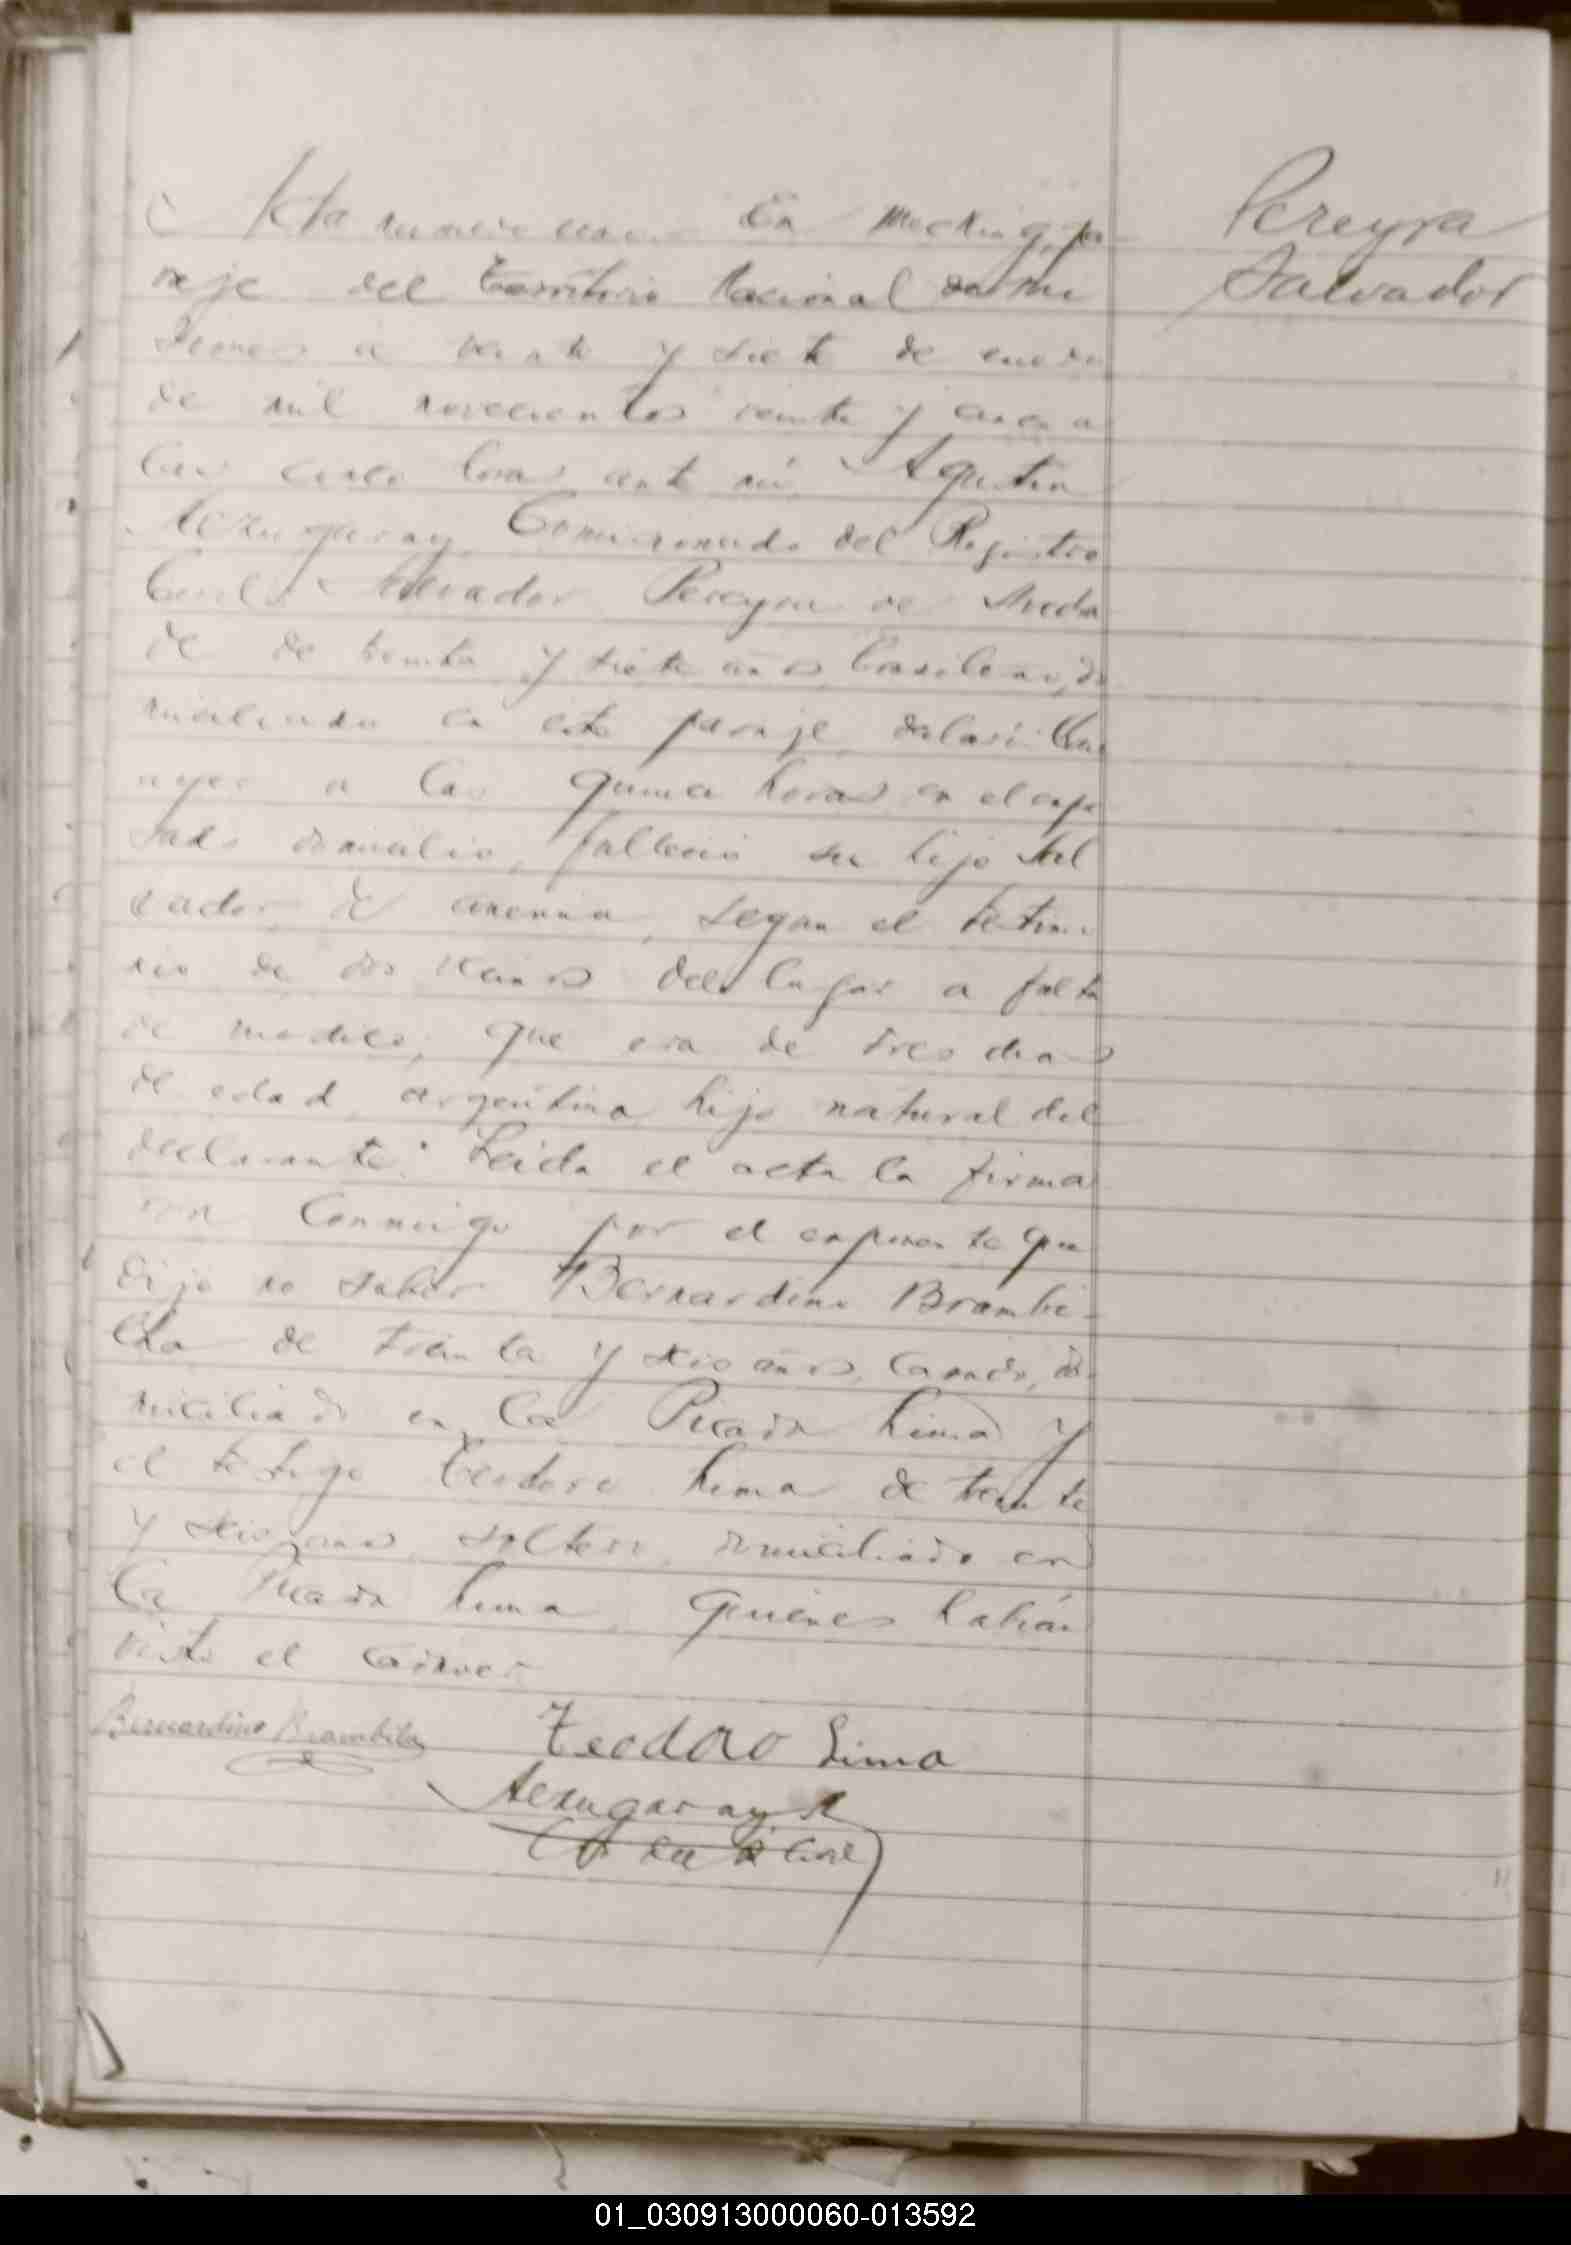 Acta numero uno. En Mecking, pa
raje del Territorio Nacional de Mi
siones a veinte y siete de enero
de mil novecientos veinte y cinco a
las cinco horas ante mi, Agustin
Aerzugaray, Comisionado del Registro
Civil, Salvador Pereyra de
de de treinta y siete años, brasilero, do
miciliado en este paraje, declaró: Que
ayer a las quince horas, en el expre
sado domicilio, falleció su hijo Sal
vador, de anemia, segun el testimo
nio de dos vecinos del lugar a falta
de medico; que era de tres dias
de edad, argentino, hijo natural del
declarante: Leida el acta la firma
ron conmigo por el exponente que
dijo no saber Bernardino Brambi-
lla de treinta y seis años, casado, do-
miciliado en la Picada Lima y
el testigo Teodoro Lima de treinta
y seis años, soltero, domiciliado en
la Picada Lima, quienes habián
visto el cadaver
Pereyra
Salvador
Bernardino Brambila Teodoro Lima
Aerzugaray A
01_030913000060-013592